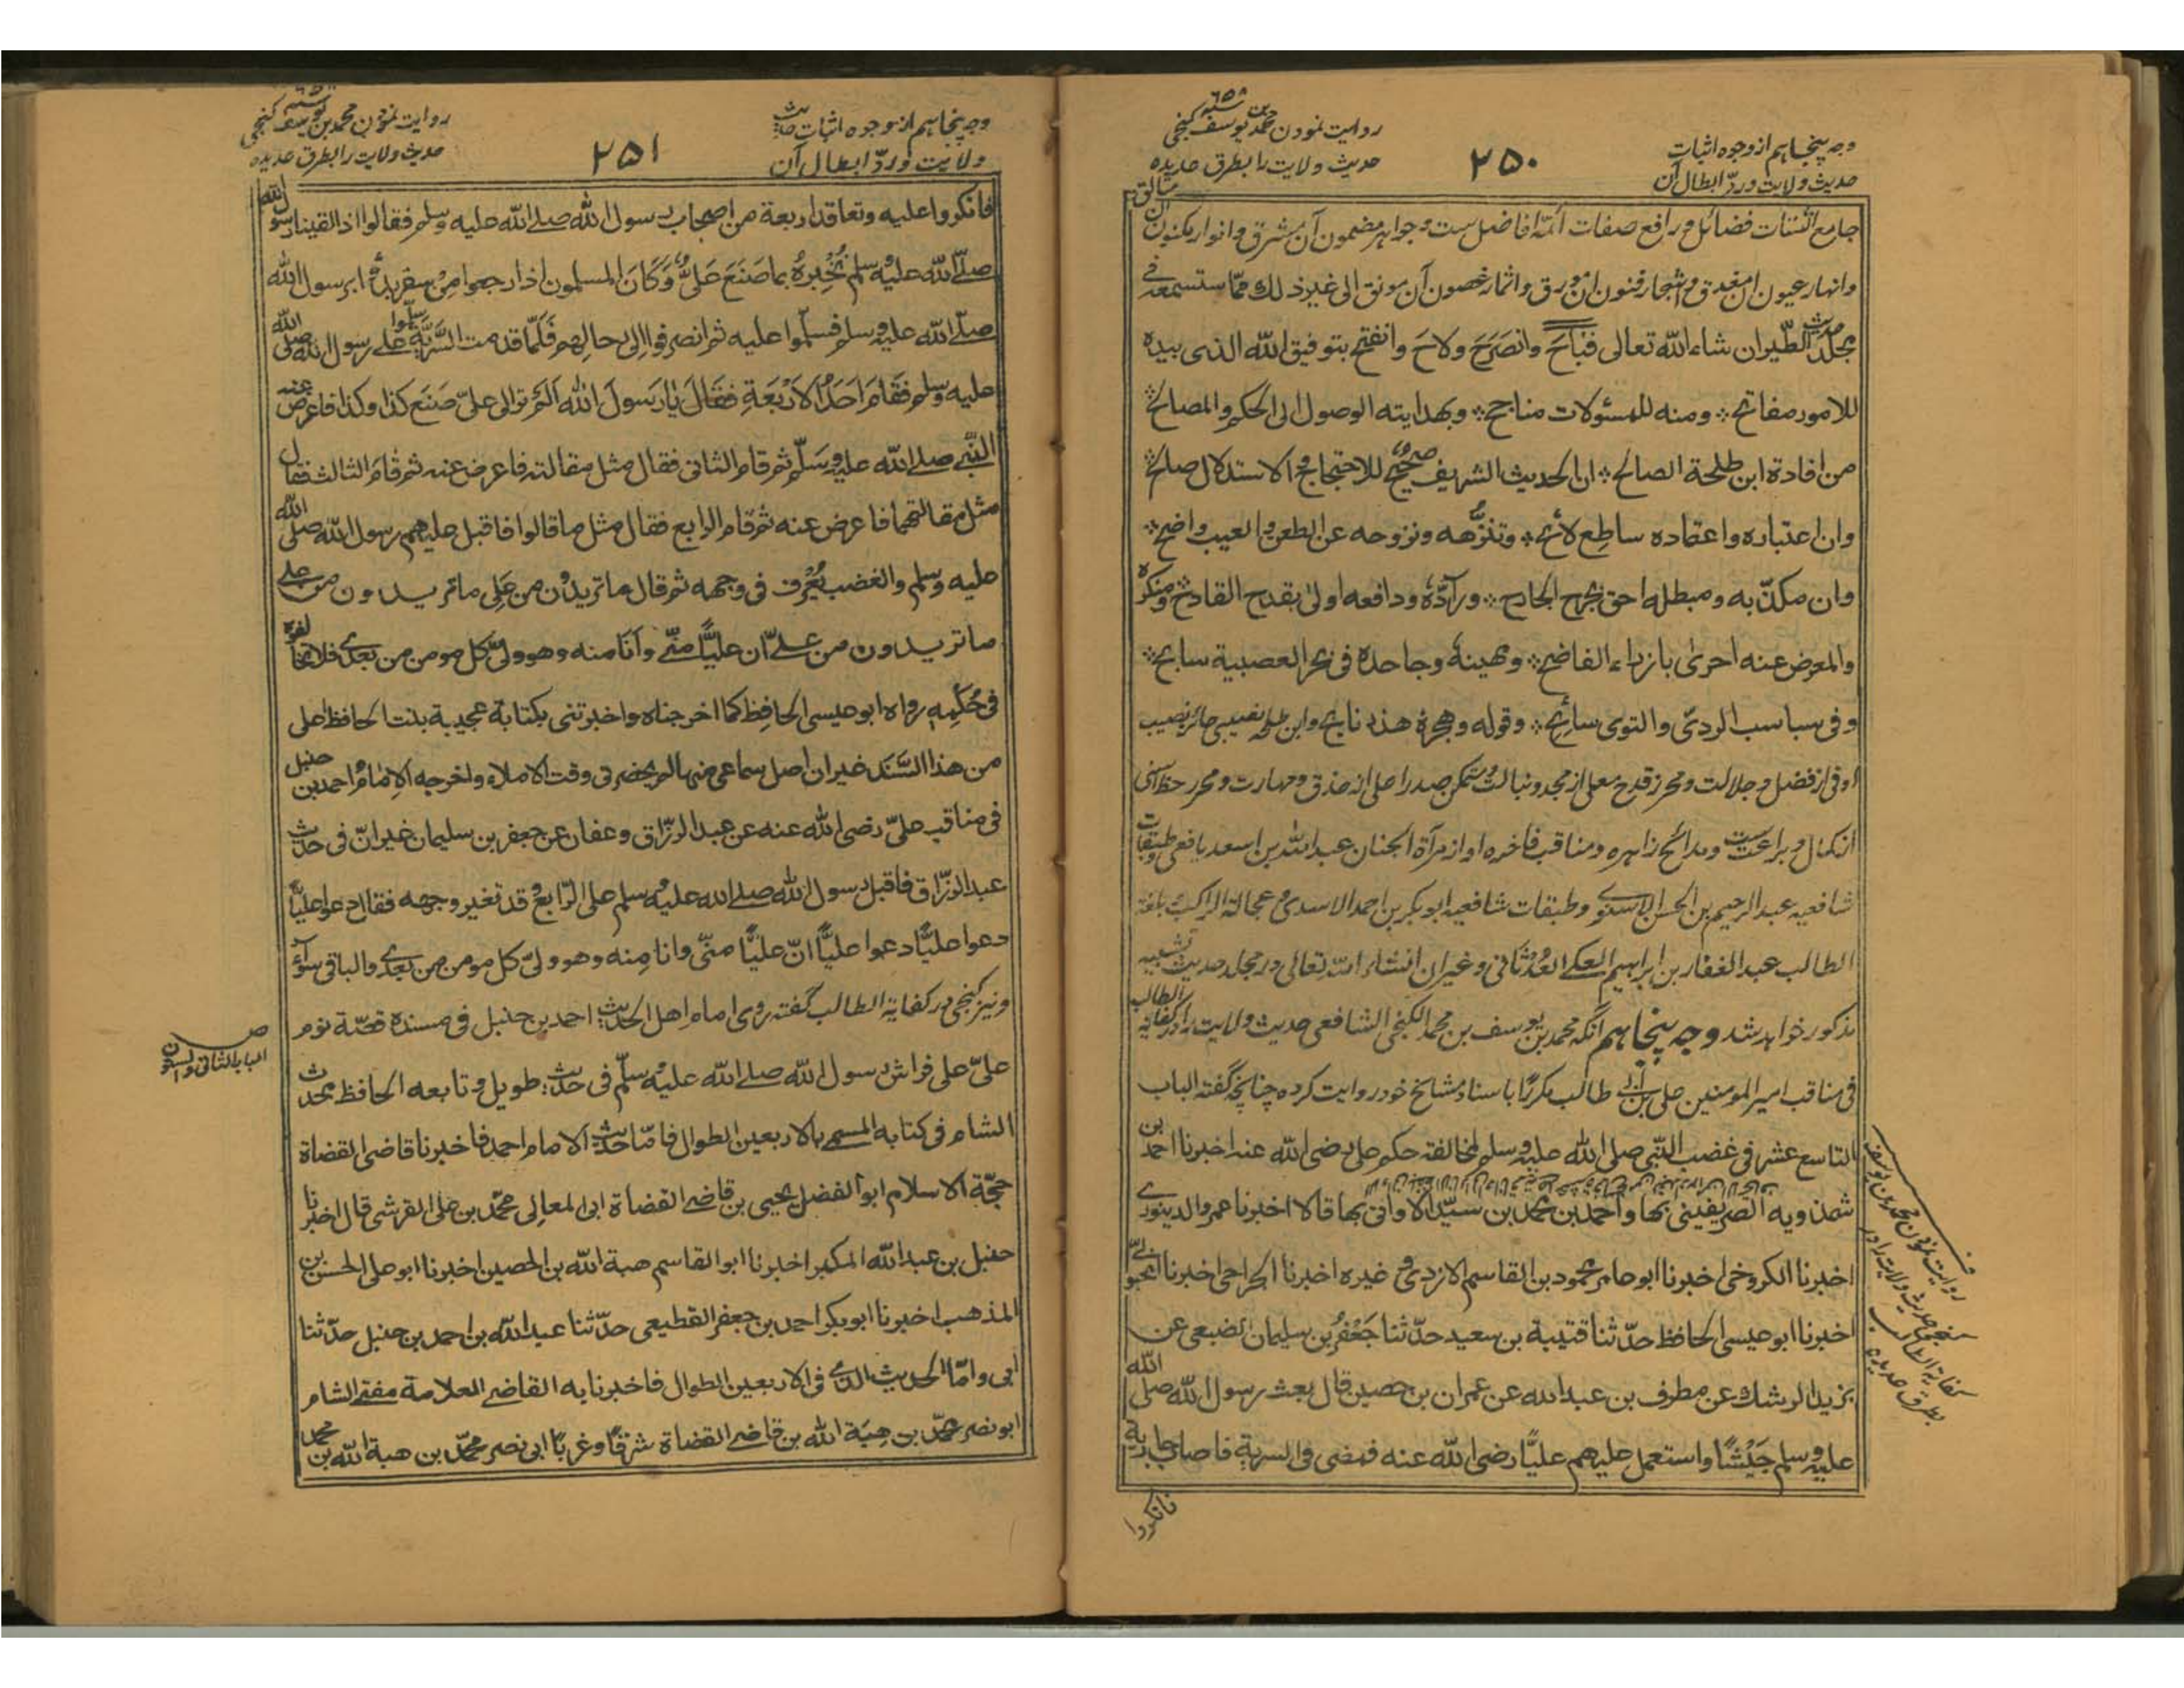 وجه پنجاهم از وجوه اثبات
حدیث ولایت ورد ابطال آن
۲۵۰
روایت نمودن محمد بن یوسف کنجی
حدیث ولایت را بطرق عدیده
جامع اشتات فضائل و رافع صفات ائمۀ افاضل ست وجواهر مضمون آن مشرق وانوار مکنون آن
وانهار عیون آن مغدق واشجار فنون آن مورق واثمار غصون آن مونق الی غیر ذلك ممّا ستسمعه فی
مجلد حدیث الطّیر ان شاء الله تعالی فَبَاحَ وانصَرَحَ ولاحَ وانفتح بتوفیق الله الذی بیده
للامور مفاتح ؞ ومنه للمسئولات مناجح ؞ وبهدایته الوصول الی الحکم والمصالح ؞
من افادة ابن طلحة الصالح ؞ ان الحدیث الشریف صحیح للاحتجاج والاستدلال صالح ؞
وان اعتباره واعتماده ساطع لائح ؞ وتنزّهه ونزوحه عن الطعن والعیب واضح ؞
وان مکذّبه ومبطله احق بجرح الجارح ؞ ورآدّه ودافعه اولی بقدح القادح ومنکره
والمعرض عنه احری بازراء الفاضح ؞ ومهینه وجاحده فی بحر العصبیة سابح ؞
وفی سباسب الردی والتوی سائح ؞ وقوله وهجره هذر نابح وابن طلحه نصیبی حائز نصیب
اوفی از فضل و جلالت ومحرز قدح معلی از مجد ونبالت ومتمکن صدر اعلی از حذق ومهارت ومحرر حظ اسنی
از کمال و براعت ست ومدائح زاهره ومناقب فاخره او از مرآة الجنان عبد الله بن اسعد یافعی وطبقات
شافعیه عبد الرحیم بن الحسن الاسنوی وطبقات شافعیه ابو بکر بن احمد الاسدی و عجالة الراکب وبلغة
الطالب عبد الغفار بن ابراهیم العکی العدثانی وغیر ان انشاء الله تعالی در مجلد حدیث تشبیه
مذکور خواهد شد وجه پنجاهم آنکه محمد بن یوسف بن محمد الکنجی الشافعی حدیث ولایت را در کفایة الطالب
فی مناقب امیر المومنین علی بن ابی طالب مکررًا باسناد مشایخ خود روایت کرده چنانچه گفته الباب
التاسع عشر فی غضب النبی صلی الله علیه وسلم لمخالفته حکم علی رضی الله عنه اخبرنا احمد بن
شمذویه الصریفینی بها واحمد بن محمد بن سیّد الاوانی بها قالا اخبرنا عمر والدینوری
اخبرنا الکروخی اخبرنا ابو عامر محمود بن القاسم الازدی وغیره اخبرنا الجراحی اخبرنا المحبوبی
اخبرنا ابو عیسی الحافظ حدّثنا قتیبة بن سعید حدّثنا جَعْفَر بن سلیمان الضبعی عن
یزید الرشك عن مطرف بن عبد الله عن عمران بن حصین قال بعث رسول الله صلی الله
علیه وسلم جَیْشًا واستعمل علیهم علیًّا رضی الله عنه فمضی فی السریة فاصاب جاریة
فانکروا
روایت نمودن محمد بن یوسف
کنجی حدیث ولایت را در
کفایة الطالب
بطرق عدیده
وجه پنجاهم از وجوه اثبات حدیث
ولایت ورد ابطال آن
۲۵۱
روایت نمودن محمد بن یوسف کنجی
حدیث ولایت را بطرق عدیده
فانکروا علیه وتعاقد اربعة من اصحاب رسول الله صلی الله علیه وسلم فقالوا اذا لقینا رسول الله
صلّی الله علیه وسلم نُخْبِرُهُ بما صَنَعَ عَلیٌّ وَکَانَ المسلمون اذا رجعوا مِنْ سفر بدؤا برسول الله
صلّی الله علیه وسلم فسلّموا علیه ثم انصرفوا الی رحالهم فَلَمّا قدمت السَّرِیّة سلّموا علی رسول الله صلی الله
علیه وسلم فقَامَ اَحَدُ الاَرْبَعَةِ فَقَالَ یَا رَسولَ الله اَلَم تر الی علیّ صَنَع کذا وکذا فاعرض عنه
النّبی صلی الله علیه وسَلّم ثم قام الثانی فقال مثل مقالته فاعرض عنه ثم قَامَ الثالث فقال
مثل مقالتهما فاعرض عنه ثم قام الرابع فقال مثل ما قالوا فاقبل علیهم رسول الله صلّی الله
علیه وسلم والغضب یُعْرَف فی وجهه ثم قال ما تریدون من عَلی ما تریدون من علی
ما تریدون من علی ان علیًّا منّی وَاَنَا منه وهو ولیّ کل مومن من بعدی فلا تخالفوه
فی حُکْمِه رواه ابو عیسی الحافِظ کما اخرجناه واخبرتنی بکتابة عجیبة بنت الحافظ اعلی
من هذا السَّنَد غیر ان اصل سماعی منها لم یحضرنی وقت الاملاء واخرجه الاِمَامُ احمد بن حنبل
فی مناقب علیّ رضی الله عنه عن عبد الرزّاق وعفان عن جعفر بن سلیمان غیر انّ فی حدیث
عبد الرزّاق فاقبل رسول الله صلی الله علیه وسلم علی الرّابع وقد تغیر وجهه فقال دعوا علیًّا
دعوا علیًّا دعوا علیًّا انّ علیًّا منّی وانا مِنه وهو ولیّ کل مومن من بعدی والباقی سوآء
ونیز کنجی در کفایة الطالب گفته روی امام اهل الحدیث احمد بن حنبل فی مسنده قصّة نوم
علیّ علی فراش رسول الله صلی الله علیه وسلّم فی حدیث طویل وتابعه الحافظ محدث
الشام فی کتابه المسمی بالاربعین الطوال فامّا حدیث الامام احمد فاخبرنا قاضی القضاة
حجّة الاسلام ابو الفضل یحیی بن قاضی القضاة ابی المعالی محمّد بن علی القرشی قال اخبرنا
حنبل بن عبد الله المکبر اخبرنا ابو القاسم هبة الله بن الحصین اخبرنا ابو علی الحسن بن
المذهب اخبرنا ابو بکر احمد بن جعفر القطیعی حدّثنا عبد الله بن احمد بن حنبل حدّثنا
ابی وامّا الحدیث الذی فی الاربعین الطوال فاخبرنا به القاضی العلامة مفتی الشام
ابو نصر محمّد بن هِبَة الله بن قاضی القضاة شرقًا وغربًا ابی نصر محمّد بن هبة الله بن محمد
الباب الثانی والستون